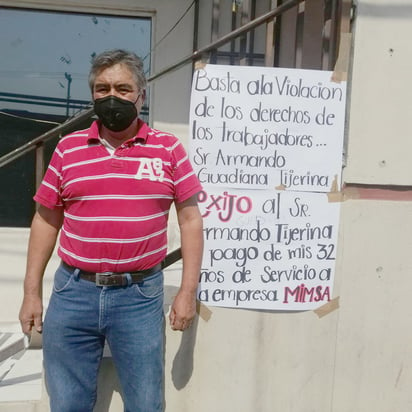 Basta a la Violacion
de los derechos de
los trabajadores...
Sr Armando
Guadiana Tijerina
exijo al Sr.
rmando Tijerina
pago de mis 32
ños de Servicio a
a empresa MIMSA